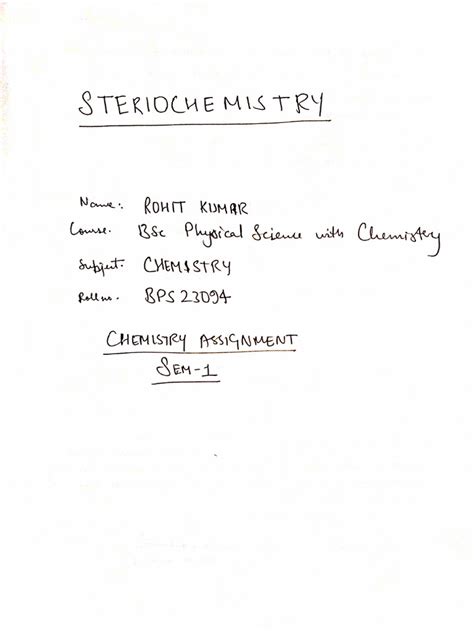 STERIOCHEMISTRY
Name: ROHIT KUMAR
Course. BSc Physical Science with Chemistry
Subject: CHEMISTRY
Roll no. BPS 23094
CHEMISTRY ASSIGNMENT
SEM-1